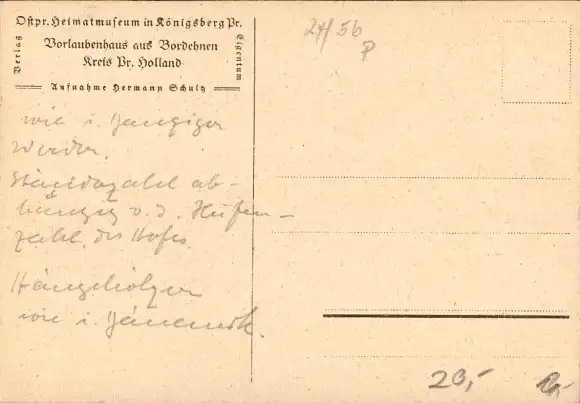 Ostpr. Heimatmuseum in Königsberg Pr.
Verlag
Vorlaubenhaus aus Bordehnen
Kreis Pr. Holland
Eigentum
Aufnahme Hermann Schultz
24/56
P
wie i. Danziger
Werder.
Ständerzahl ab-
hängig v. d. Hufen-
zahl des Hofes.
Hängehölzer
wie i. Dänemark.
20,-